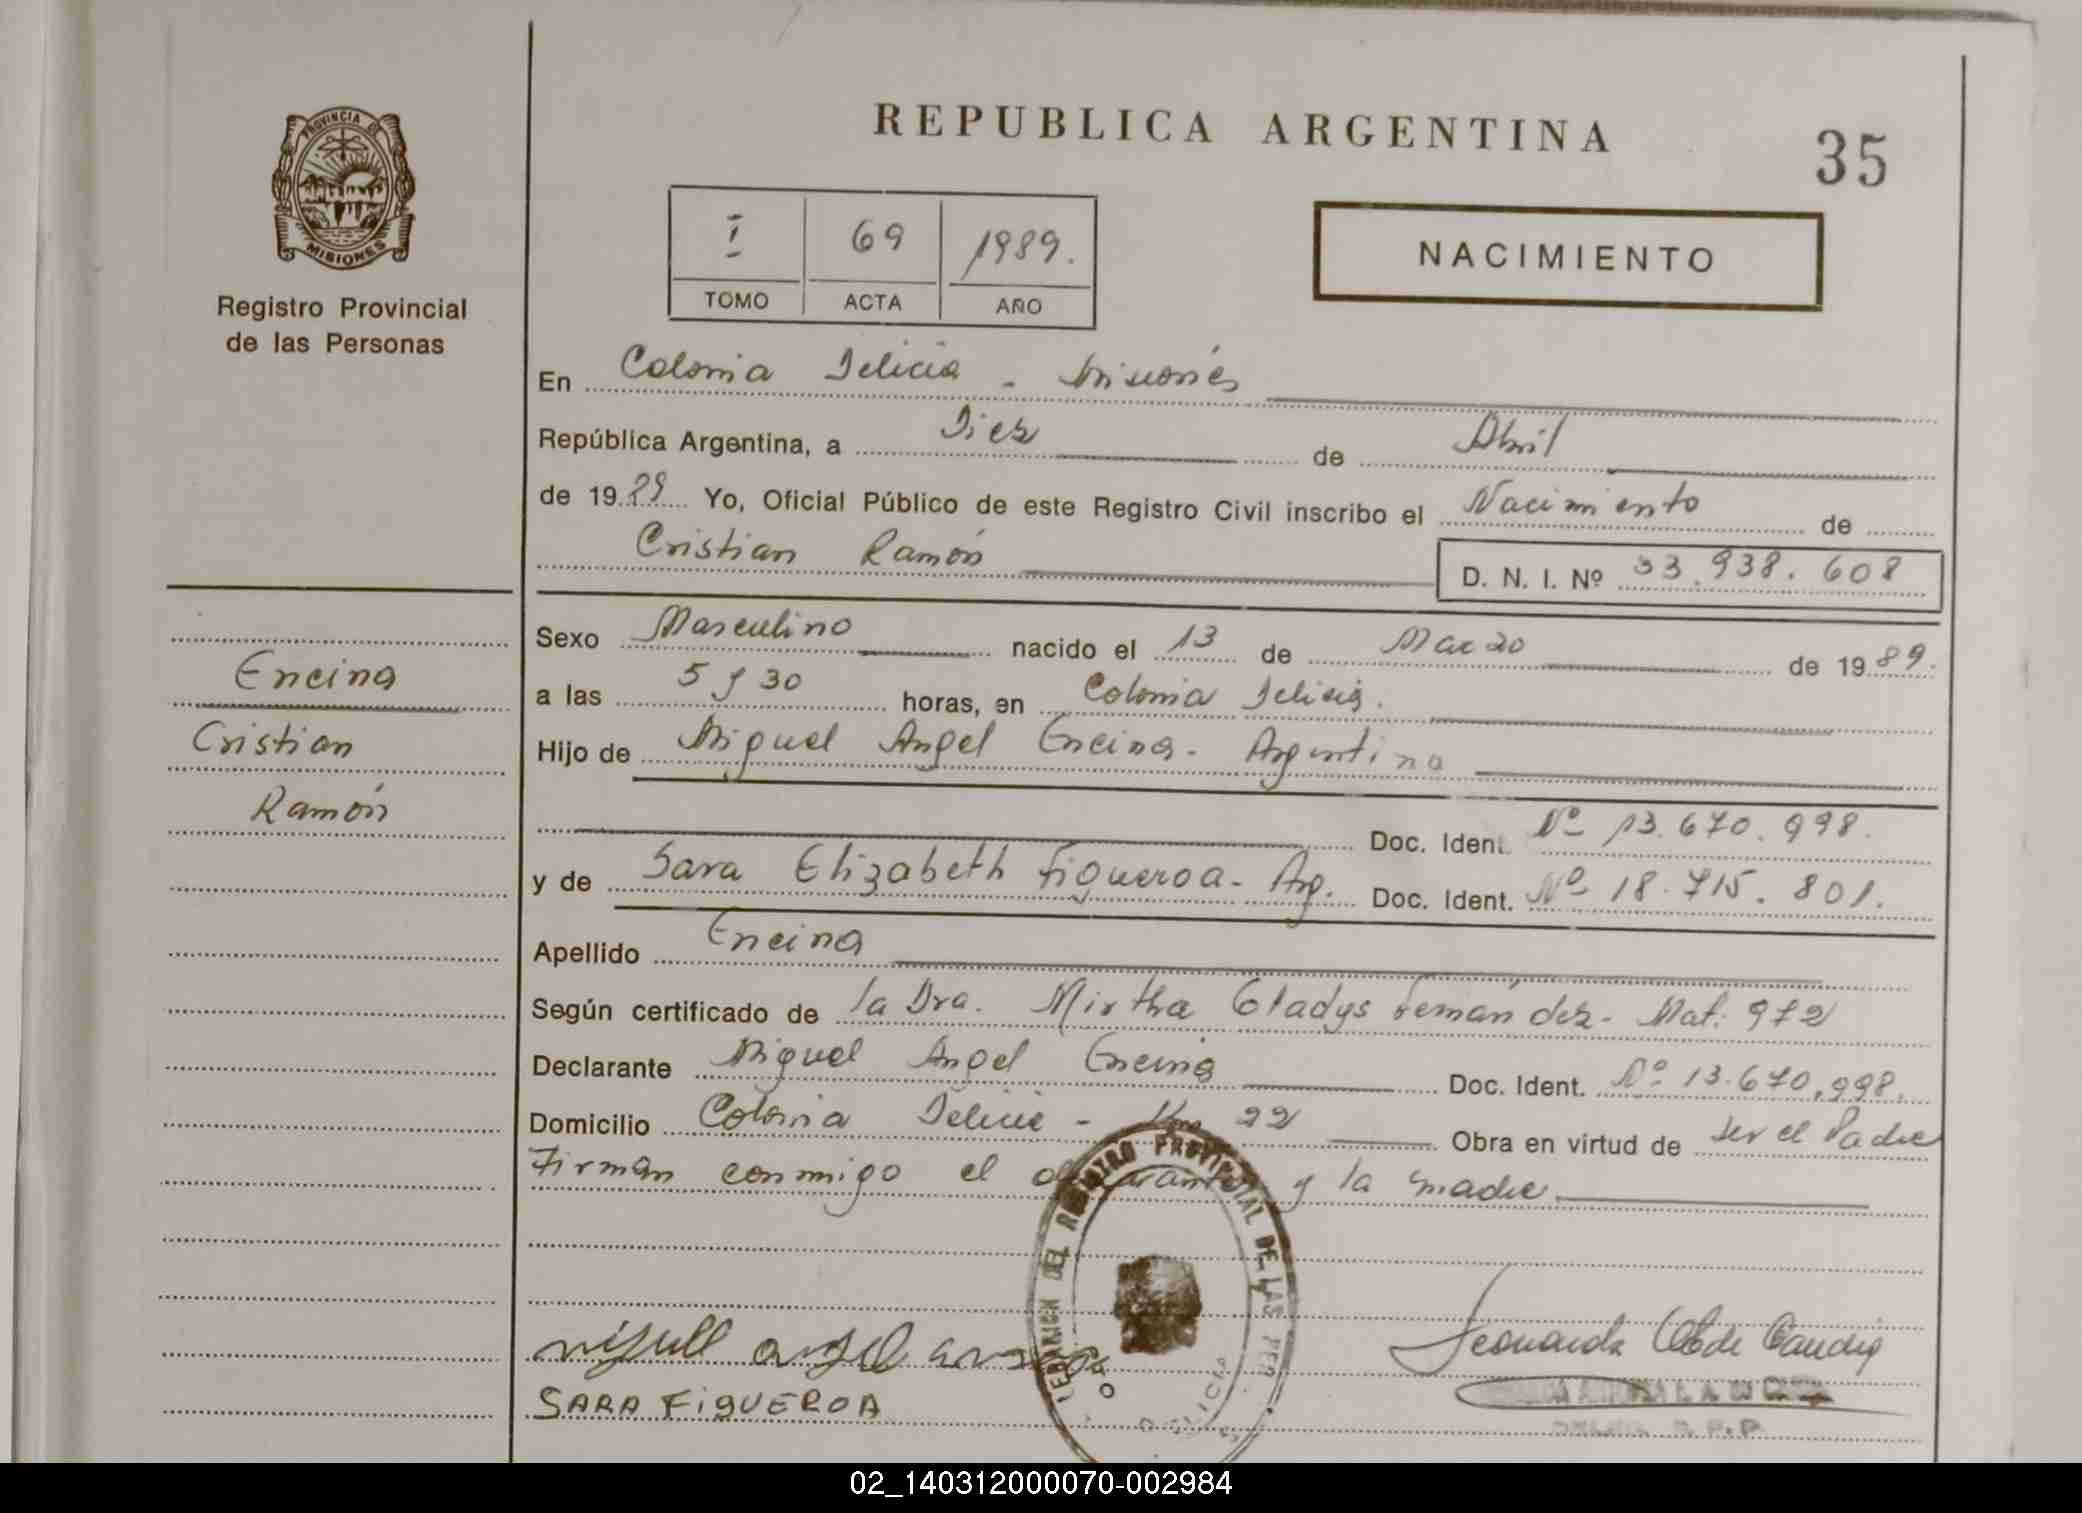 PROVINCIA DE
MISIONES
Registro Provincial
de las Personas
REPUBLICA ARGENTINA
35
I 69 1989.
TOMO ACTA AÑO
NACIMIENTO
En Colonia Delicia - Misiones
República Argentina, a Diez de Abril
de 1989 Yo, Oficial Público de este Registro Civil inscribo el Nacimiento de
Cristian Ramón D. N. I. Nº 33.938.608
Sexo Masculino nacido el 13 de Marzo de 1989.
a las 5 y 30 horas, en Colonia Delicia.
Hijo de Miguel Angel Encina - Argentina
Doc. Ident. Nº 13.670.998.
y de Sara Elizabeth Figueroa - Arg. Doc. Ident. Nº 18.715.801.
Apellido Encina
Según certificado de la Dra. Mirtha Gladys Fernández - Mat. 972
Declarante Miguel Angel Encina Doc. Ident. Nº 13.670.998.
Domicilio Colonia Delicia - Km 22 Obra en virtud de ser el Padre
Firman conmigo el declarante y la madre
Encina
Cristian
Ramón
SARA FiGUEROA
02_140312000070-002984